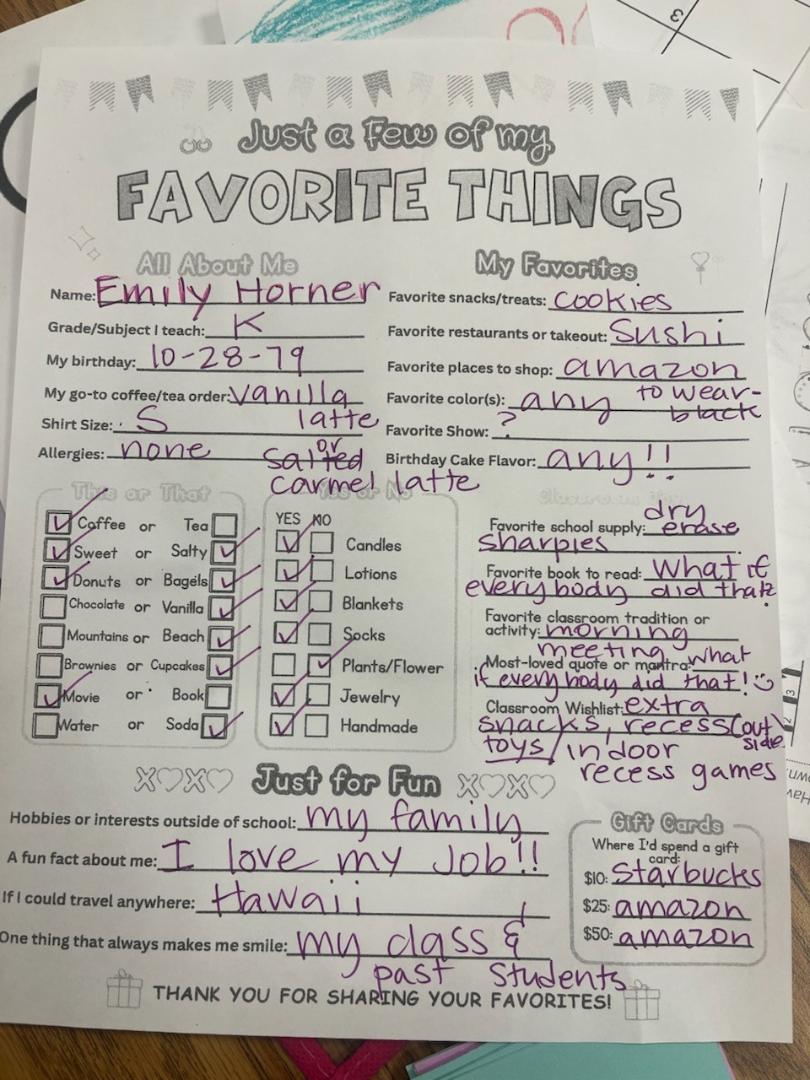 Just a Few of my
FAVORITE THINGS
All About Me
Name: Emily Horner
Grade/Subject I teach: K
My birthday: 10-28-79
My go-to coffee/tea order: vanilla
latte
Shirt Size: S
or
Allergies: none
salted
carmel latte
My Favorites
Favorite snacks/treats: cookies
Favorite restaurants or takeout: Sushi
Favorite places to shop: amazon
Favorite color(s): any to wear-
black
Favorite Show: ?
Birthday Cake Flavor: any!!
This or That
Coffee or Tea
Sweet or Salty
Donuts or Bagels
Chocolate or Vanilla
Mountains or Beach
Brownies or Cupcakes
Movie or Book
Water or Soda
Yes or No
YES NO
Candles
Lotions
Blankets
Socks
Plants/Flower
Jewelry
Handmade
dry
Favorite school supply: erase
sharpies
Favorite book to read: What if
everybody did that?
Favorite classroom tradition or
activity: morning
meeting
Most-loved quote or mantra: what
if everybody did that!
Classroom Wishlist: extra
snacks, recess (out
side
toys/indoor
recess games
XOXO Just for Fun XOXO
Hobbies or interests outside of school: my family
A fun fact about me: I love my job!!
If I could travel anywhere: Hawaii
One thing that always makes me smile: my class &
past students
Gift Cards
Where I'd spend a gift
card:
$10: Starbucks
$25: amazon
$50: amazon
THANK YOU FOR SHARING YOUR FAVORITES!